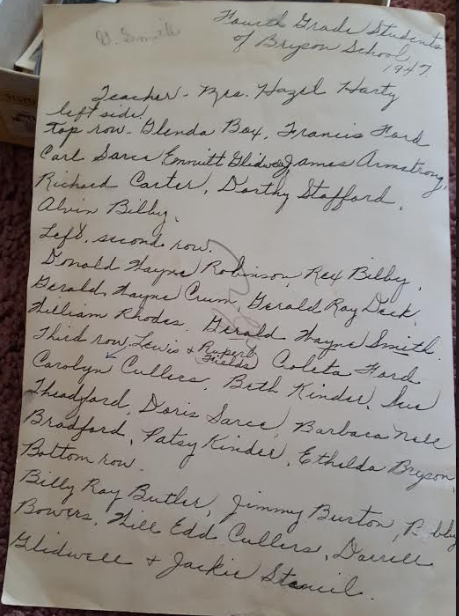 G. Smith
Fourth Grade Students
of Bryson School
1947
Teacher - Mrs. Hazel Harty
left side,
top row - Glenda Box, Francis Ford
Carl Sarce Emmitt Glidwell James Armstrong,
Richard Carter, Dorthy Stafford,
Alvin Bilby,
Left, second row.
Donald Wayne Robinson, Rex Bilby,
Gerald Wayne Crum, Gerald Ray Deck,
William Rhodes, Gerald Wayne Smith.
Third row, Lewis & Rupert Fields Coleta Ford
Carolyn Cullers, Beth Kinder, Sue
Theadford, Doris Sarce, Barbara Nell
Bradford, Patsy Kinder, Ethelda Bryson
Bottom row.
Billy Ray Butler, Jimmy Burton, Bobby
Bowers, Will Edd Cullers, Darrell
Glidwell & Jackie Stancil.